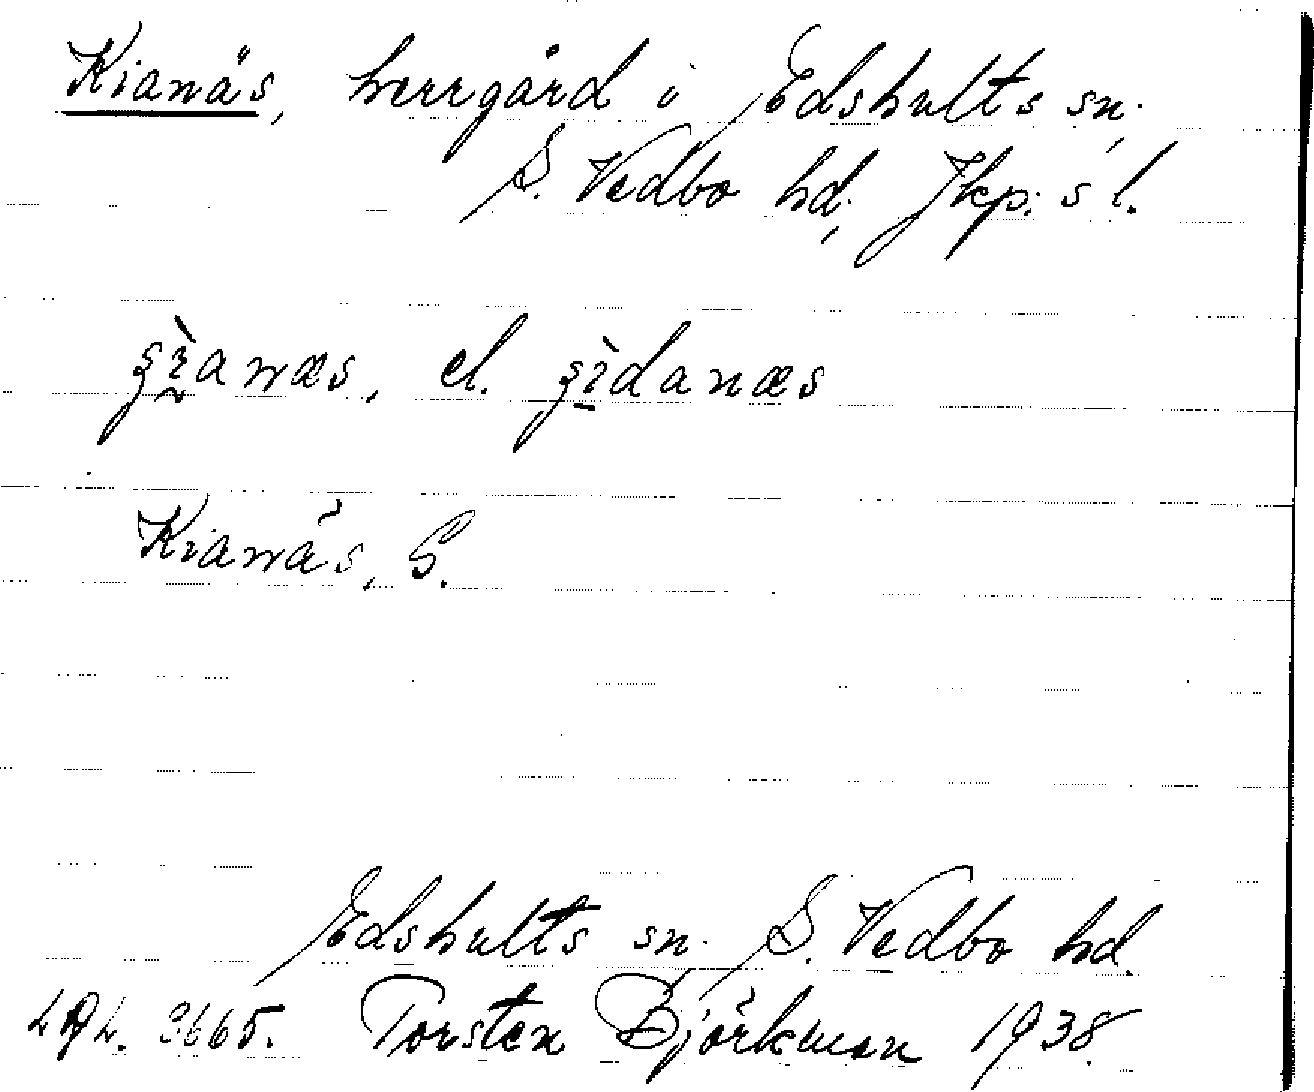 Kianäs, herrgård i Edshults sn,
S. Vedbo hd, Jkp. s l.
el.
Kianäs, G.
Edshults sn. S. Vedbo hd.
3665. Torsten Björkman 1938